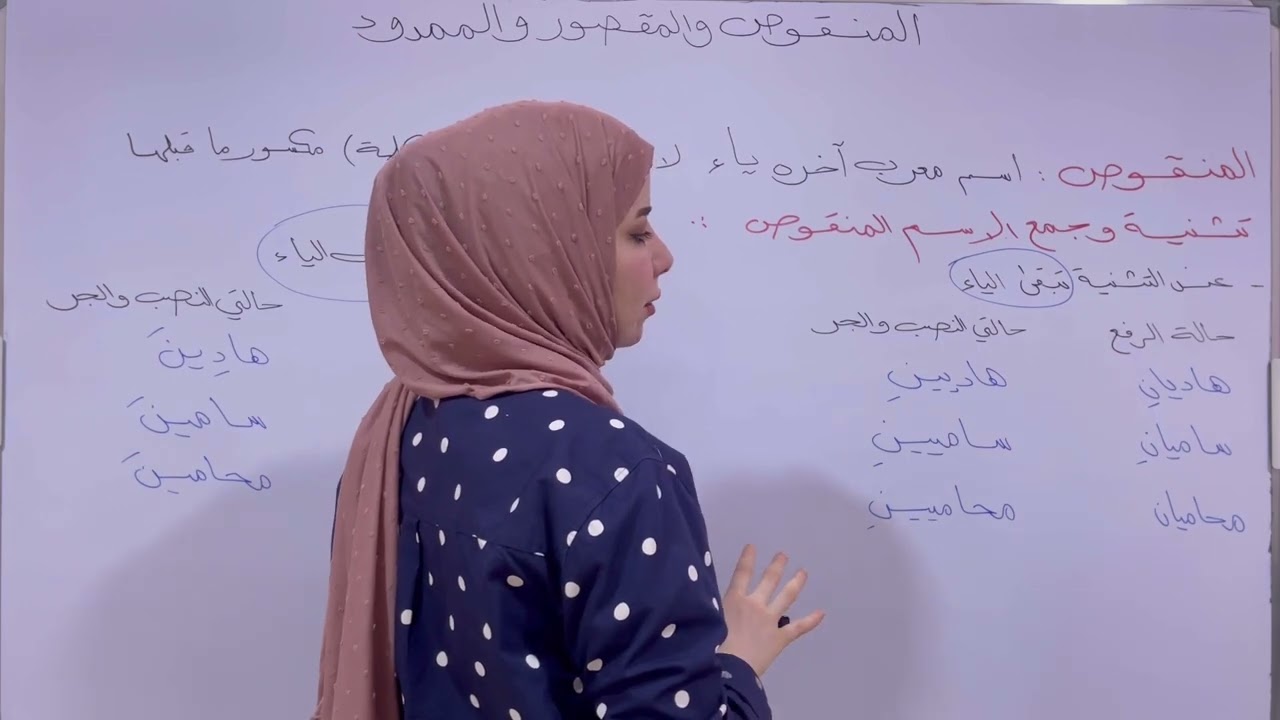 المنقوص والمقصور والممدود
المنقوص : اسم معرب آخره ياء مكسور ما قبلها
تثنية وجمع الاسم المنقوص :
- عند التثنية تبقى الياء
الياء
حالة الرفع حالتي النصب والجر
هاديانِ هاديينِ
ساميانِ ساميينِ
محاميان محاميينِ
حالتي النصب والجر
هادِينَ
سامينَ
محامينَ